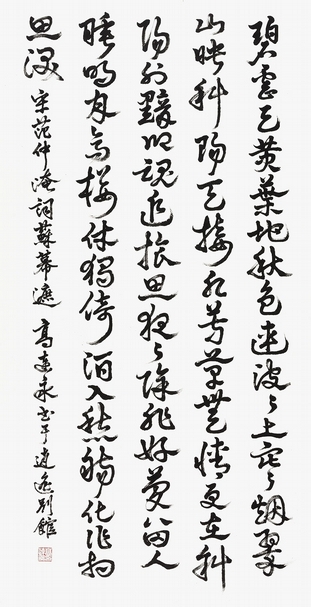 碧雲天黃葉地秋色連波々上寒烟翠
山映斜陽天接水芳草無情更在斜
陽外黯鄉魂追旅思夜々除非好夢留人
睡明月高樓休獨倚酒入愁腸化作相
思淚
宋范仲淹詞蘇幕遮 高永書于逍遙別館